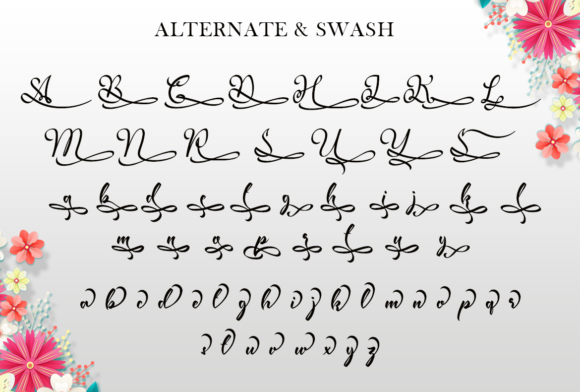 ALTERNATE & SWASH
A B C D H I K L
M N R S U Y
a b d e g h i j k l
m n o p r y
a b c d e f g h i j k l m n o p q r
s t u v w x y z